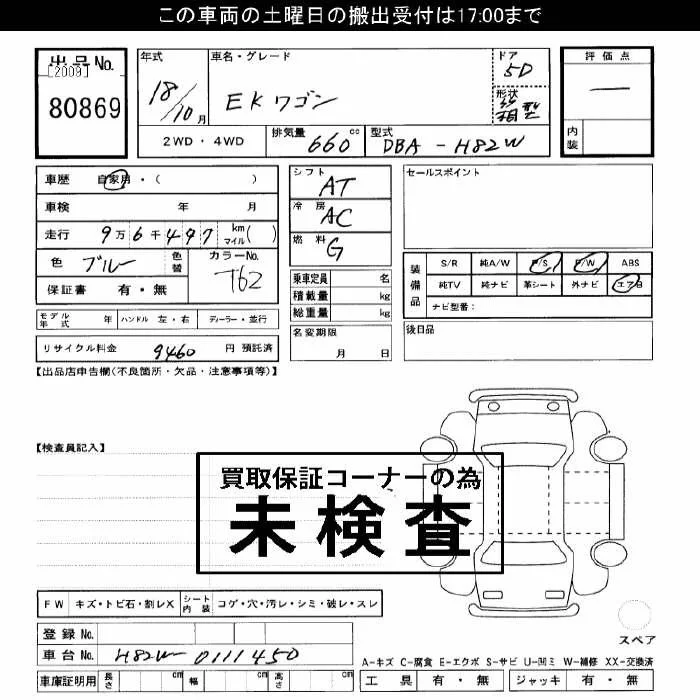 この車両の土曜日の搬出受付は17:00まで
出品No.
[2009]
80869
年式
18/10 月
車名・グレード
EKワゴン
ドア
5D
形状
箱型
評価点
—
内装
2WD・4WD
排気量 660 cc
型式 DBA-H82W
車歴 自家用・( )
車検 年 月
走行 9万6千497 km マイル( )
色 ブルー 色替
カラーNo. T62
保証書 有・無
シフト AT
冷房 AC
燃料 G
乗車定員 名
積載量 kg
総重量 kg
名変期限 月 日
セールスポイント
装備品
S/R 純A/W P/S P/W ABS
純TV 純ナビ 革シート 外ナビ エアB
ナビ型番：
後日品
モデル年式 年 ハンドル 左・右 ディーラー・並行
リサイクル料金 9460 円 預託済
【出品店申告欄(不良箇所・欠品・注意事項等)】
【検査員記入】
買取保証コーナーの為
未検査
FW キズ・トビ石・割レX シート内装 コゲ・穴・汚レ・シミ・破レ・スレ
登録No.
車台No. H82W-0111450
車庫証明用 長さ cm 幅 cm 高さ cm
スペア
A-キズ C-腐食 E-エクボ S-サビ U-凹ミ W-補修 XX-交換済
工具 有・無 ジャッキ 有・無